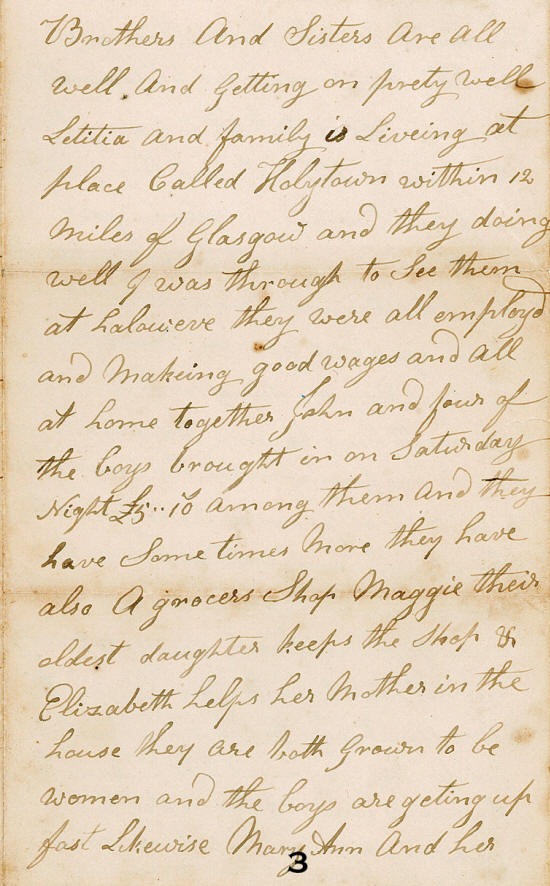 Brothers And Sisters Are All
well And Getting on prety well
Letitia and family is Liveing at
place Called Holytown within 12
Miles of Glasgow and they doing
well I was through to See them
at haloweve they were all employd
and Makeing good wages and All
at home together John and four of
the boys brought in on Saturday
Night £5..10 among them And they
have Some times More they have
also A grocers Shop Maggie their
oldest daughter keeps the Shop &
Elizabeth helps her Mother in the
house they are both Grown to be
women and the boys are geting up
fast Likewise Mary Ann And her
3